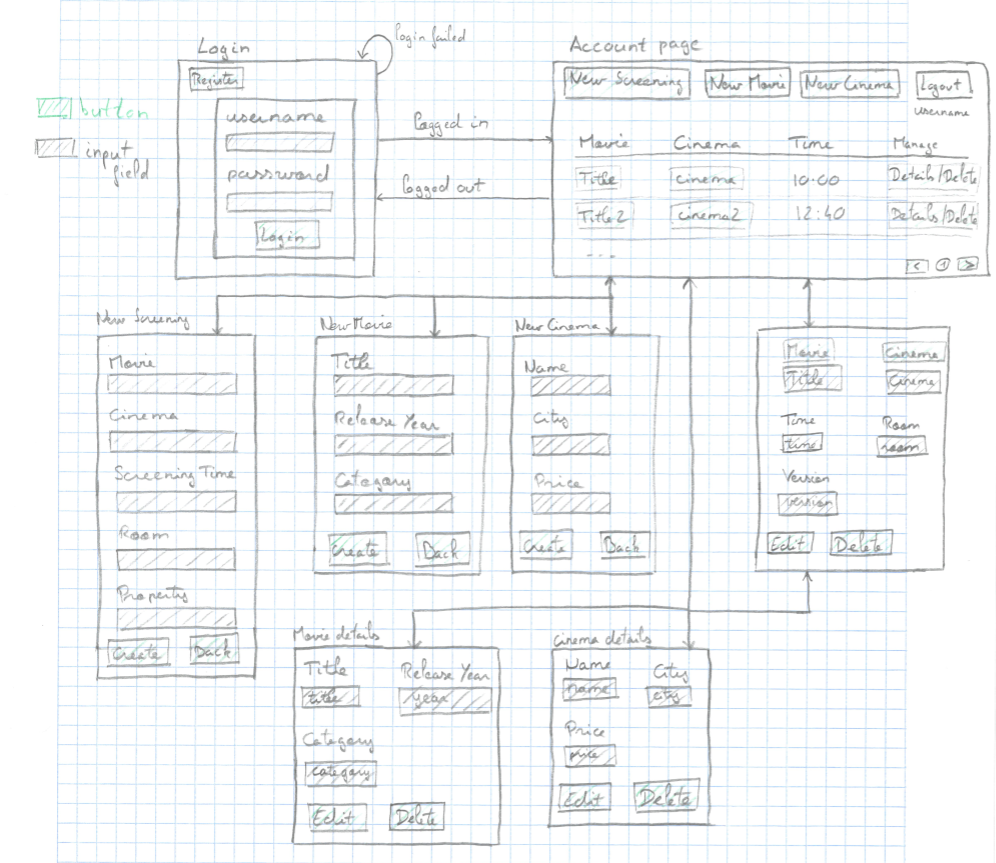 Login
login failed
Register
button
input
field
username
password
Login
Logged in
Logged out
Account page
New Screening
New Movie
New Cinema
Logout
username
Movie Cinema Time Manage
Title cinema 10:00 Details/Delete
Title2 cinema2 12:40 Details/Delete
...
< 1 >
New Screening
Movie
Cinema
Screening Time
Room
Property
Create Back
New Movie
Title
Release Year
Category
Create Back
New Cinema
Name
City
Price
Create Back
Movie Cinema
Title Cinema
Time Room
time room
Version
version
Edit Delete
Movie details
Title Release Year
title year
Category
category
Edit Delete
Cinema details
Name City
name city
Price
price
Edit Delete